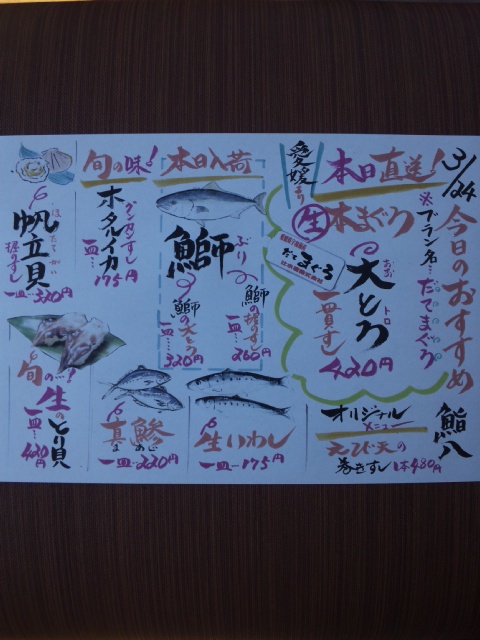 3/24
今日のおすすめ
鮨八
※ブランド名…だてまぐろ
本日直送!
愛媛より
生本まぐろ
だてまぐろ
大とろ
おお
トロ
一貫すし
420円
オリジナル
メニュー
えび天の
巻きすし 1本480円
本日入荷
鰤
ぶり
鰤の握りずし
一皿…260円
鰤の大とろ
一皿…320円
生いわし
一皿…175円
旬の味!
ホタルイカ
グンカンすし
一皿…175円
真鯵
まあじ
一皿…220円
帆立貝
ほたてがい
握りすし
一皿…320円
旬の!
生のとり貝
一皿…420円